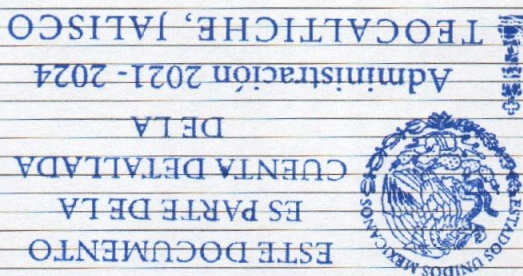 ESTADOS UNIDOS MEXICANOS
ESTE DOCUMENTO
ES PARTE DE LA
CUENTA DETALLADA
DE LA
Administración 2021 - 2024
TEOCALTICHE, JALISCO